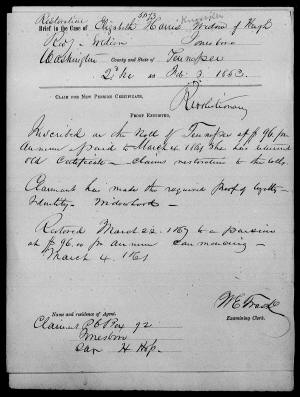 Restoration
Brief in the Case of Elizabeth Harris Widow of Hugh
Rev. Jonesboro
Washington County and State of Tennessee
Act Feb. 3. 1853.
CLAIM FOR NEW PENSION CERTIFICATE.
Revolutionary
PROOF EXHIBITED,
Inscribed on the Roll of Tennessee at $96. per
Annum & paid to March 4. 1861 She has returned
old Certificate — claims restoration to the rolls.
Claimant has made the required proof of loyalty —
Identity — Widowhood —
Restored March 22. 1867 to a pension
at $96.00 per annum commencing —
March 4. 1861
Examining Clerk.
Name and residence of Agent,
Claimant P.O. Box 92
Jonesboro